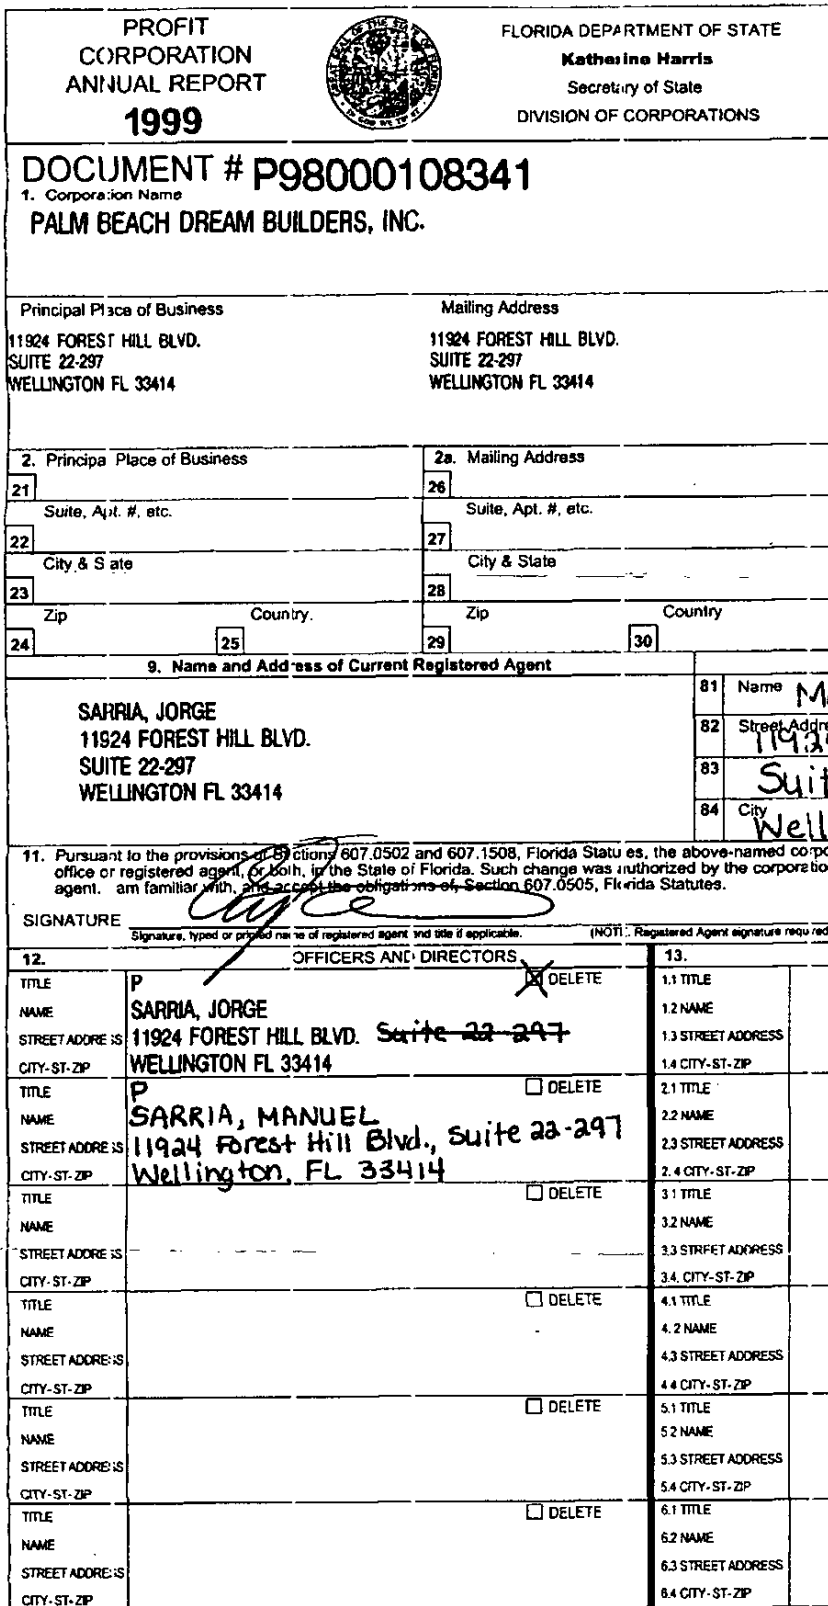 PROFIT
CORPORATION
ANNUAL REPORT
1999
FLORIDA DEPARTMENT OF STATE
Katherine Harris
Secretary of State
DIVISION OF CORPORATIONS
DOCUMENT # P98000108341
1. Corporation Name
PALM BEACH DREAM BUILDERS, INC.
Principal Place of Business
11924 FOREST HILL BLVD.
SUITE 22-297
WELLINGTON FL 33414
Mailing Address
11924 FOREST HILL BLVD.
SUITE 22-297
WELLINGTON FL 33414
2. Principa Place of Business
21
Suite, Apt. #, etc.
22
City & S ate
23
Zip
24
Country.
25
2a. Mailing Address
26
Suite, Apt. #, etc.
27
City & State
28
Zip
29
Country
30
9. Name and Address of Current Registered Agent
SARRIA, JORGE
11924 FOREST HILL BLVD.
SUITE 22-297
WELLINGTON FL 33414
81 Name
82 Street Addre
1192
83
Suit
84 City
Well
11. Pursuant to the provisions of Sections 607.0502 and 607.1508, Florida Statu es, the above-named corpo
office or registered agent, or both, in the State of Florida. Such change was authorized by the corporatio
agent. am familiar with, and accept the obligations of, Section 607.0505, Florida Statutes.
SIGNATURE
Signature, typed or printed name of registered agent and title if applicable.
(NOTE: Registered Agent signature required
12. OFFICERS AND DIRECTORS
13.
TITLE P DELETE
NAME SARRIA, JORGE
STREET ADDRESS 11924 FOREST HILL BLVD. Suite 22-297
CITY-ST-ZIP WELLINGTON FL 33414
1.1 TITLE
1.2 NAME
1.3 STREET ADDRESS
1.4 CITY-ST-ZIP
TITLE P DELETE
NAME SARRIA, MANUEL
STREET ADDRESS 11924 Forest Hill Blvd., Suite 22-297
CITY-ST-ZIP Wellington, FL 33414
2.1 TITLE
2.2 NAME
2.3 STREET ADDRESS
2.4 CITY-ST-ZIP
TITLE DELETE
NAME
STREET ADDRESS
CITY-ST-ZIP
3.1 TITLE
3.2 NAME
3.3 STREET ADDRESS
3.4. CITY-ST-ZIP
TITLE DELETE
NAME
STREET ADDRESS
CITY-ST-ZIP
4.1 TITLE
4.2 NAME
4.3 STREET ADDRESS
4.4 CITY-ST-ZIP
TITLE DELETE
NAME
STREET ADDRESS
CITY-ST-ZIP
5.1 TITLE
5.2 NAME
5.3 STREET ADDRESS
5.4 CITY-ST-ZIP
TITLE DELETE
NAME
STREET ADDRESS
CITY-ST-ZIP
6.1 TITLE
6.2 NAME
6.3 STREET ADDRESS
6.4 CITY-ST-ZIP